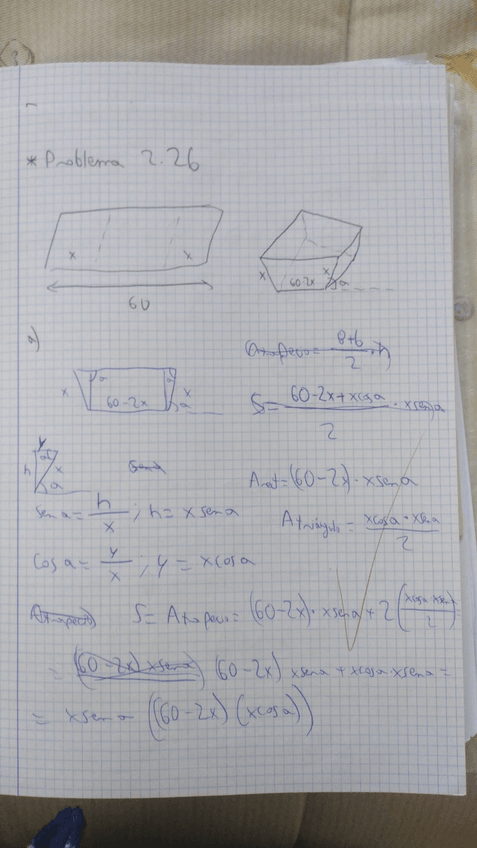 * Problema 2.26
x x
60
x 60-2x x a
a)
Atrapecio = B+b/2 · h
x a 60-2x a x a
S = 60-2x+xcosa/2 · xsena
y
h a x a
Arect = (60-2x) · xsena
sena = h/x ; h = xsena
Atriángulo = xcosa · xsena/2
cosa = y/x ; y = xcosa
S = Atrapecio = (60-2x) · xsena + 2(xcosa · xsena/2) =
= (60-2x) xsena (60-2x) xsena + xcosa · xsena =
= xsena ((60-2x) (xcosa))